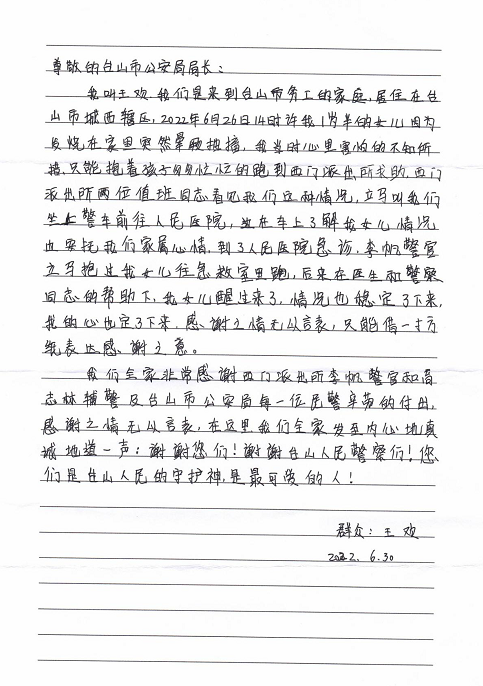 尊敬的台山市公安局局长：
我叫王欢，我们是来到台山市务工的家庭，居住在台
山市城西辖区，2022年6月26日14时许我1岁半的女儿因为
发烧在家里突然晕厥抽搐，我当时心里害怕的不知所
措，只能抱着孩子匆匆忙忙的跑到西门派出所求助，西门
派出所两位值班同志看见我们这种情况，立马叫我们
坐上警车前往人民医院，在车上了解我女儿情况
也安抚我们家属心情，到了人民医院急诊，李帆警官
立马抱过我女儿往急救室里跑，后来在医生和警察
同志的帮助下，我女儿醒过来了，情况也稳定了下来，
我的心也定了下来，感谢之情无以言表，只能借一寸方
纸表达感谢之意。
我们全家非常感谢西门派出所李帆警官和
志林辅警及台山市公安局每一位民警辛劳的付出，
感谢之情无以言表，在这里我们全家发至内心地真
诚地道一声：谢谢您们！谢谢台山人民警察们！您
们是台山人民的守护神，是最可爱的人！
群众：王欢
2022.6.30